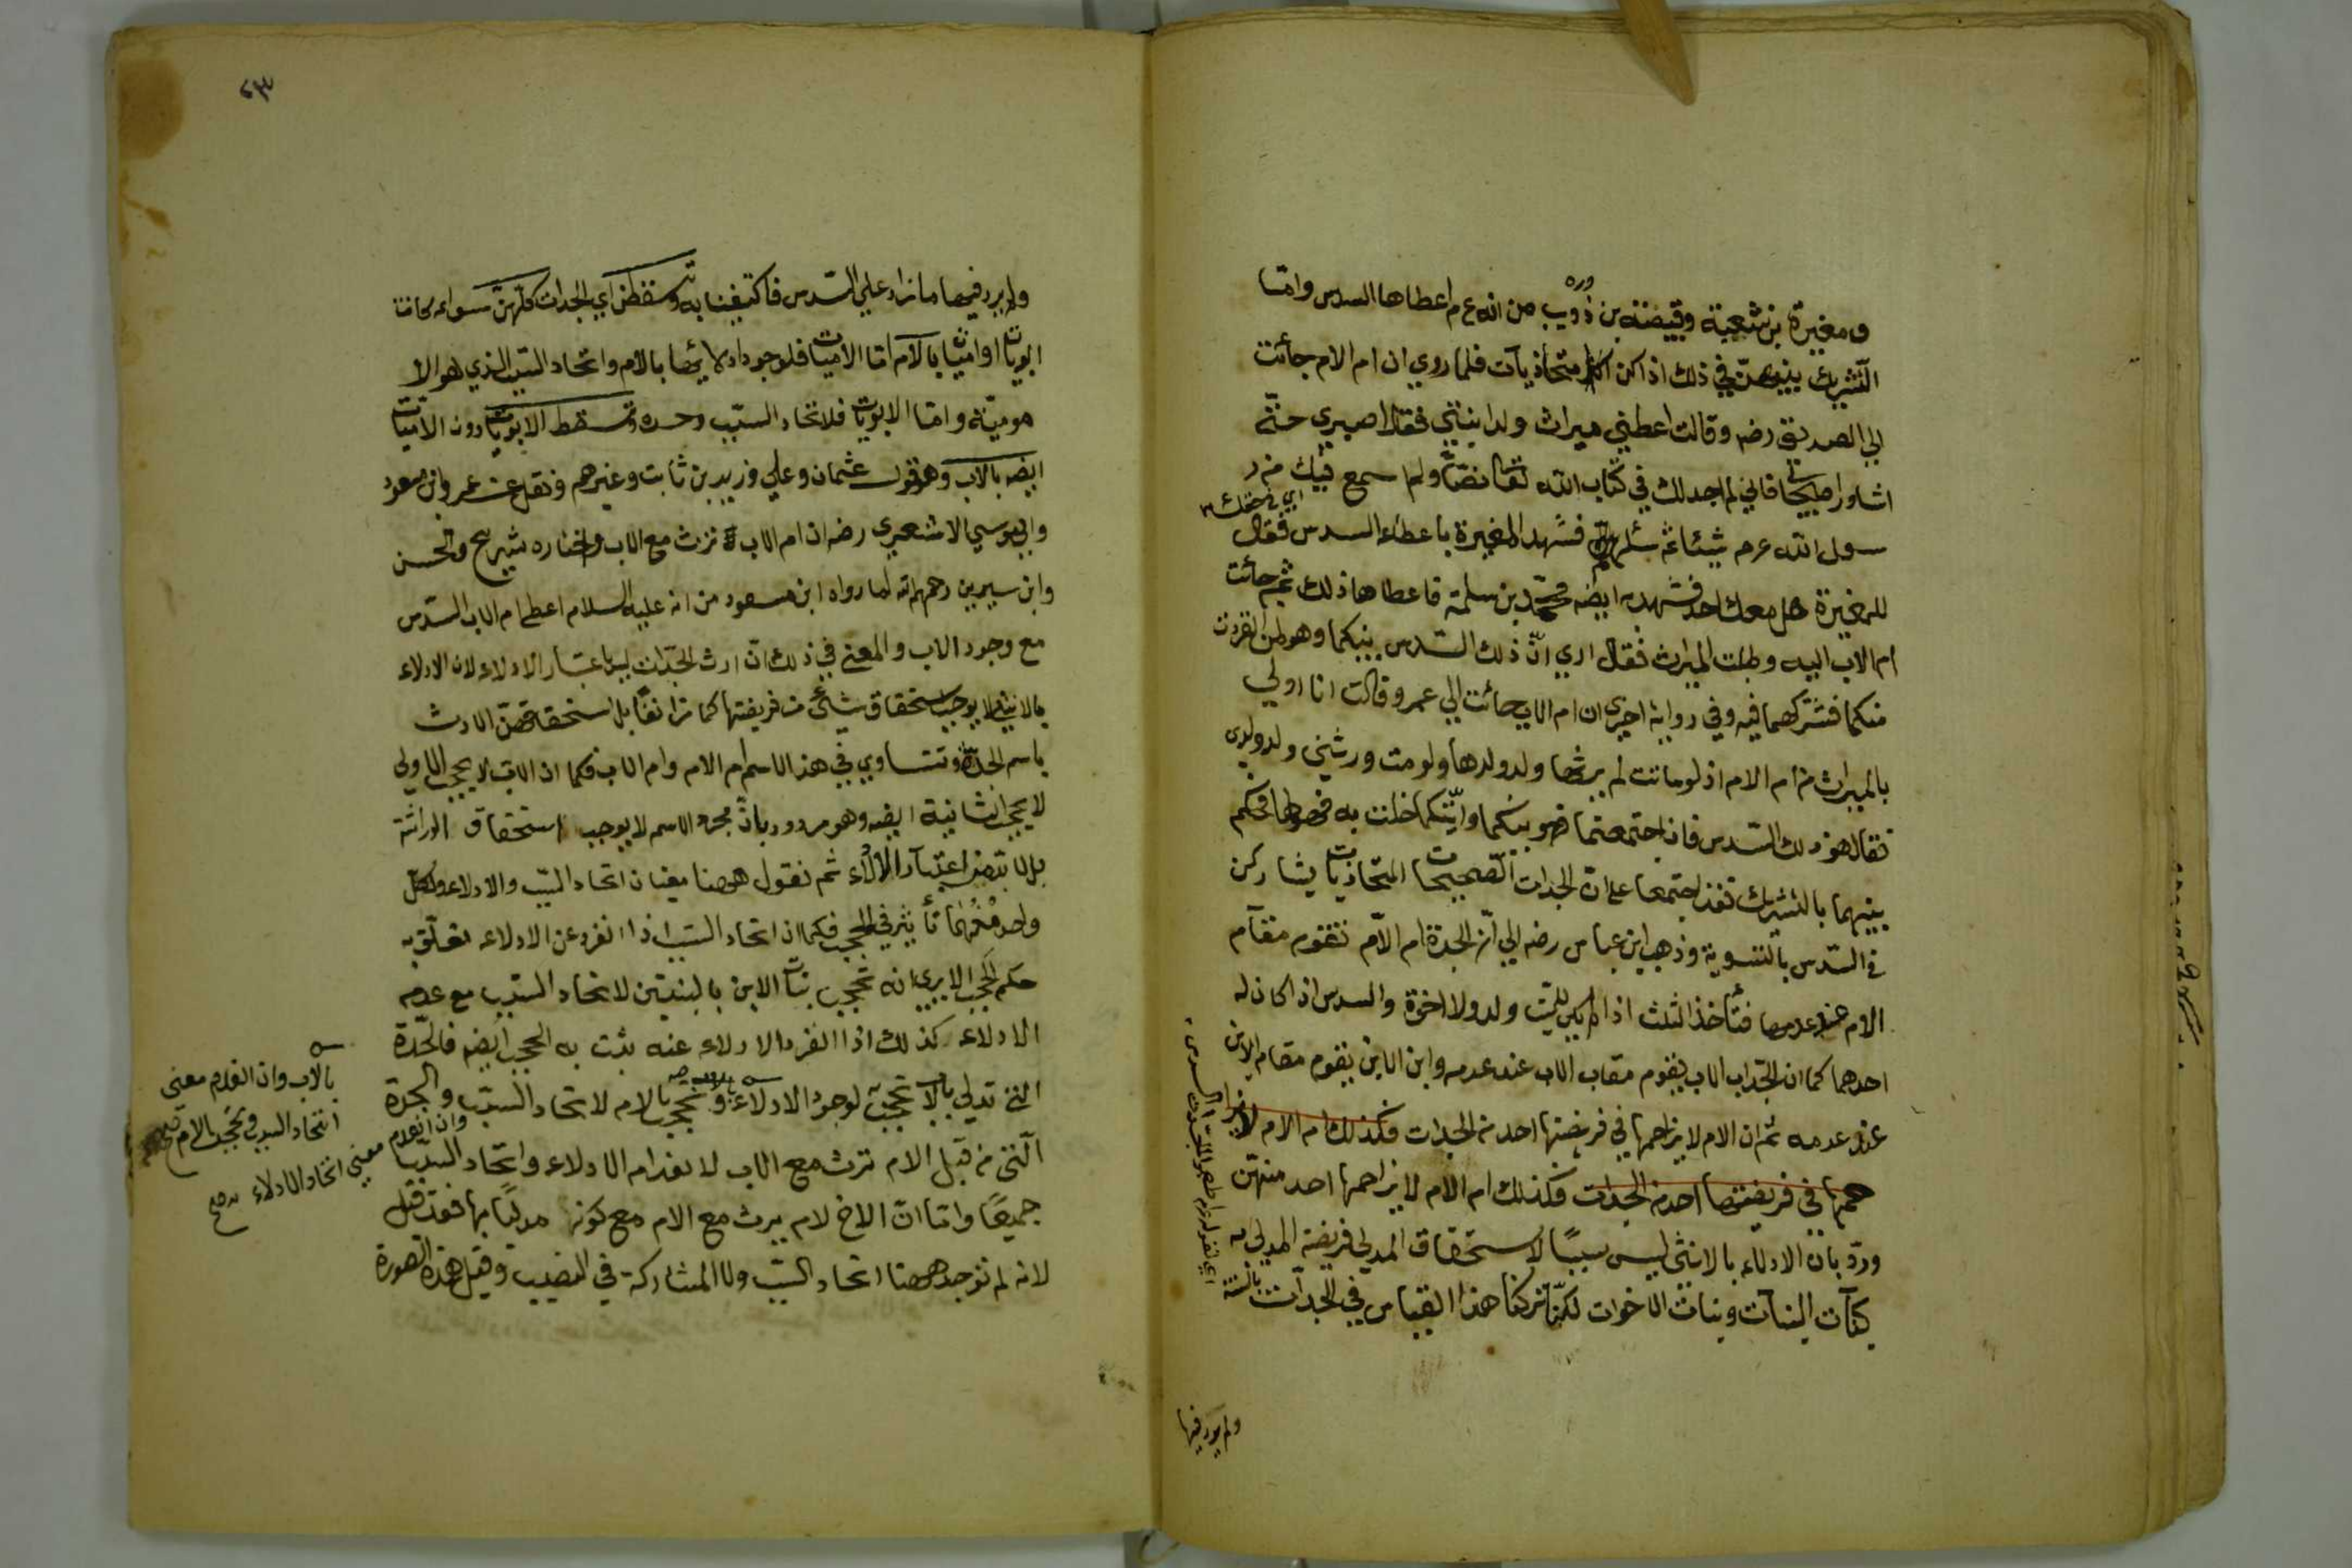 ومغيرة بن شعبة وقبيصة بن ذويب من انه ع م اعطاها السدس واما
التشريك بينهن في ذلك اذا كن اكثر متحاذيات فلما روي ان ام الام جائت
الي الصديق رضه وقالت اعطني ميراث ولد ابنتي فقال اصبري حتي
اشاور اصحابي فاني لم اجد لك في كتاب الله تعا نصا ولم اسمع فيك من ر
اي في حقك
سول الله عم شيئا ثم سئلهم فشهد المغيرة باعطاء السدس فقال
للمغيرة هل معك احد فشهد به ايضه محمد بن سلمة فاعطاها ذلك ثم جائت
ام الاب اليه وطلبت الميراث فقال اري ان ذلك السدس بينكما وهو لمن انفردت
منكما فشركهما فيه وفي رواية اخري ان ام الاب جائت الي عمر وقالت انا اولي
بالميراث من ام الام اذ لو ماتت لم يرثها ولد ولدها ولو مت ورثني ولد ولدي
فقال هو ذلك السدس فان اجتمعتما فهو بينكما وايتكما خلت به فهو لها فحكم
بينهما بالتشريك فقد اجتمعا علي ان الجدات الصحيحات المتحاذيات يشاركن
في السدس بالتسوية وذهب ابن عباس رضه الي ان الجدة ام الام تقوم مقام
الام عند عدمها فتأخذ الثلث اذا لم يكن للميت ولد ولا اخوة والسدس اذا كان له
احدهما كما ان الجد اب الاب يقوم مقاب الاب عند عدمه وابن الابن يقوم مقام الابن
عند عدمه ثم ان الام لا يزاحمها في فريضتها احد من الجدات فكذلك ام الام لا يزا
حمها في فريضتها احد من الجدات فكذلك ام الام لا يزاحمها احد منهن
ورد بان الادلاء بالانثي ليس سببا لاستحقاق المدلي فريضة المدلي به
كبنات البنات وبنات الاخوات لكنا تركنا هذا القياس في الجدات بالسنة
ولم يرد فيها
ولم يرد فيها ما زاد علي السدس فاكتفينا به وتسقطن اي الجدات كلهن سواء كانت
ابويات او اميات بالام اما الاميات فلوجود ادلائها بالام واتحاد السبب الذي هو الا
مومية واما الابويات فلاتحاد السبب وحده وتسقط الابويات دون الاميات
ايضه بالاب وهو قول عثمان وعلي وزيد بن ثابت وغيرهم ونقل عن عمر وابن مسعود
وابي موسي الاشعري رضه ان ام الاب ترث مع الاب واختاره شريح والحسن
وابن سيرين رحمهم الله لما رواه ابن مسعود من انه عليه السلام اعطي ام الاب السدس
مع وجود الاب والمعني في ذلك ان ارث الجدات ليس باعتبار الادلاء لان الادلاء
بالانثي لا يوجب استحقاق شئ من فريضتها كما مر انفا بل استحقاقهن الارث
باسم الجدة وتتساوي في هذا الاسم ام الام وام الاب فكما ان الاب لا يحجب الاولي
لا يحجب الثانية ايضه وهو مردود بان مجرد الاسم لا يوجب استحقاق الوراثة
بل لا بد من اعتبار الادلاء ثم نقول ههنا معنيان اتحاد السبب والادلاء ولكل
واحد منهما تأثير في الحجب فكما ان اتحاد السبب اذا انفرد عن الادلاء تعلق به
حكم الحجب الا يري انه تحجب بنات الابن بالبنتين لاتحاد السبب مع عدم
الادلاء كذلك اذا انفرد الادلاء عنه يثبت به الحجب ايضه فالجدة
التي تدلي بالاب تحجب لوجود الادلاء وتحجب بالام لاتحاد السبب والجدة
التي من قبل الام ترث مع الاب لانعدام الادلاء واتحاد السبب
جميعا واما ان الاخ لام يرث مع الام مع كونه مدليا بها فقد قيل
لانه لم توجد ههنا اتحاد السبب ولا المشاركة في النصيب وقيل هذه الصورة
بالاب وان انعدم معني
اتحاد السبب وتحجب بالام
وان انعدم
معني اتحاد الادلاء صح